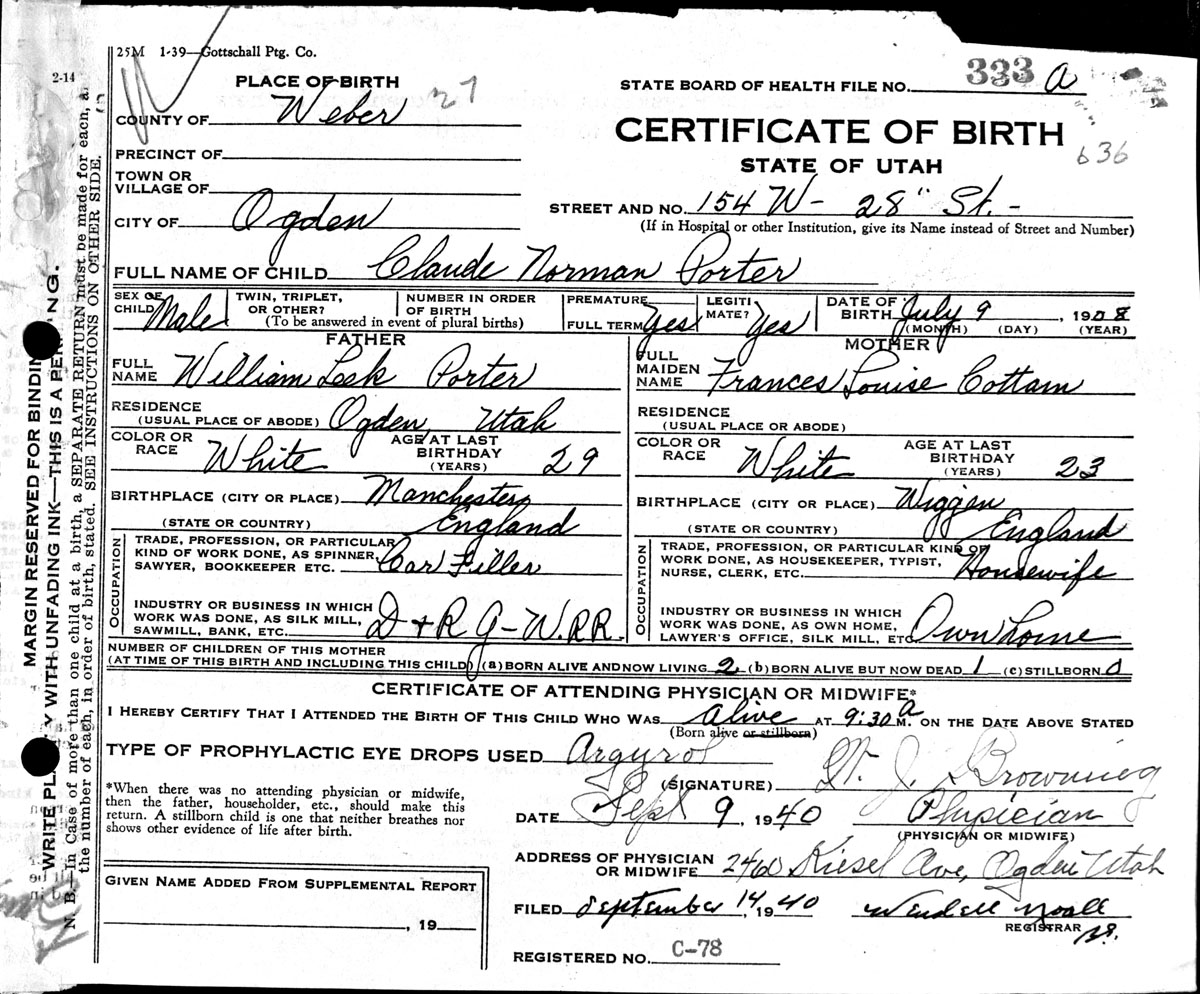 25M 1-39—Gottschall Ptg. Co.
2-14
PLACE OF BIRTH 27
COUNTY OF Weber
PRECINCT OF
TOWN OR
VILLAGE OF
CITY OF Ogden
STATE BOARD OF HEALTH FILE NO. 333 a
CERTIFICATE OF BIRTH
636
STATE OF UTAH
STREET AND NO. 154 W- 28" St.-
(If in Hospital or other Institution, give its Name instead of Street and Number)
FULL NAME OF CHILD Claude Norman Porter
SEX OF
CHILD Male
TWIN, TRIPLET,
OR OTHER?
NUMBER IN ORDER
OF BIRTH
(To be answered in event of plural births)
PREMATURE
FULL TERM Yes
LEGITI
MATE? Yes
DATE OF
BIRTH July 9, 1908
(MONTH) (DAY) (YEAR)
FATHER
FULL
NAME William Leek Porter
RESIDENCE
(USUAL PLACE OF ABODE) Ogden, Utah
COLOR OR
RACE White
AGE AT LAST
BIRTHDAY
(YEARS) 29
BIRTHPLACE (CITY OR PLACE) Manchester,
(STATE OR COUNTRY) England
OCCUPATION
TRADE, PROFESSION, OR PARTICULAR
KIND OF WORK DONE, AS SPINNER,
SAWYER, BOOKKEEPER ETC. Car Filler
INDUSTRY OR BUSINESS IN WHICH
WORK WAS DONE, AS SILK MILL,
SAWMILL, BANK, ETC. D + R G - W. RR.
MOTHER
FULL
MAIDEN
NAME Frances Louise Cottam
RESIDENCE
(USUAL PLACE OR ABODE)
COLOR OR
RACE White
AGE AT LAST
BIRTHDAY
(YEARS) 23
BIRTHPLACE (CITY OR PLACE) Wiggen
(STATE OR COUNTRY) England
OCCUPATION
TRADE, PROFESSION, OR PARTICULAR KIND OF
WORK DONE, AS HOUSEKEEPER, TYPIST,
NURSE, CLERK, ETC. Housewife
INDUSTRY OR BUSINESS IN WHICH
WORK WAS DONE, AS OWN HOME,
LAWYER'S OFFICE, SILK MILL, ETC Own home
NUMBER OF CHILDREN OF THIS MOTHER
(AT TIME OF THIS BIRTH AND INCLUDING THIS CHILD) (a) BORN ALIVE AND NOW LIVING 2 (b) BORN ALIVE BUT NOW DEAD 1 (c) STILLBORN 0
CERTIFICATE OF ATTENDING PHYSICIAN OR MIDWIFE*
I HEREBY CERTIFY THAT I ATTENDED THE BIRTH OF THIS CHILD WHO WAS alive AT 9:30 a M. ON THE DATE ABOVE STATED
(Born alive or stillborn)
TYPE OF PROPHYLACTIC EYE DROPS USED Argyrol
*When there was no attending physician or midwife,
then the father, householder, etc., should make this
return. A stillborn child is one that neither breathes nor
shows other evidence of life after birth.
(SIGNATURE) W. J. Browning
DATE Sept 9, 1940 Physician
(PHYSICIAN OR MIDWIFE)
ADDRESS OF PHYSICIAN
OR MIDWIFE 2460 Kiesel Ave, Ogden Utah
GIVEN NAME ADDED FROM SUPPLEMENTAL REPORT
, 19
FILED September 14, 1940 Wendell Noall
REGISTRAR
REGISTERED NO. C-78
MARGIN RESERVED FOR BINDING.
WRITE PLAINLY WITH UNFADING INK—THIS IS A PER
N. B.—In Case of more than one child at a birth, a SEPARATE RETURN must be made for each, and
the number of each, in order of birth, stated. SEE INSTRUCTIONS ON OTHER SIDE.